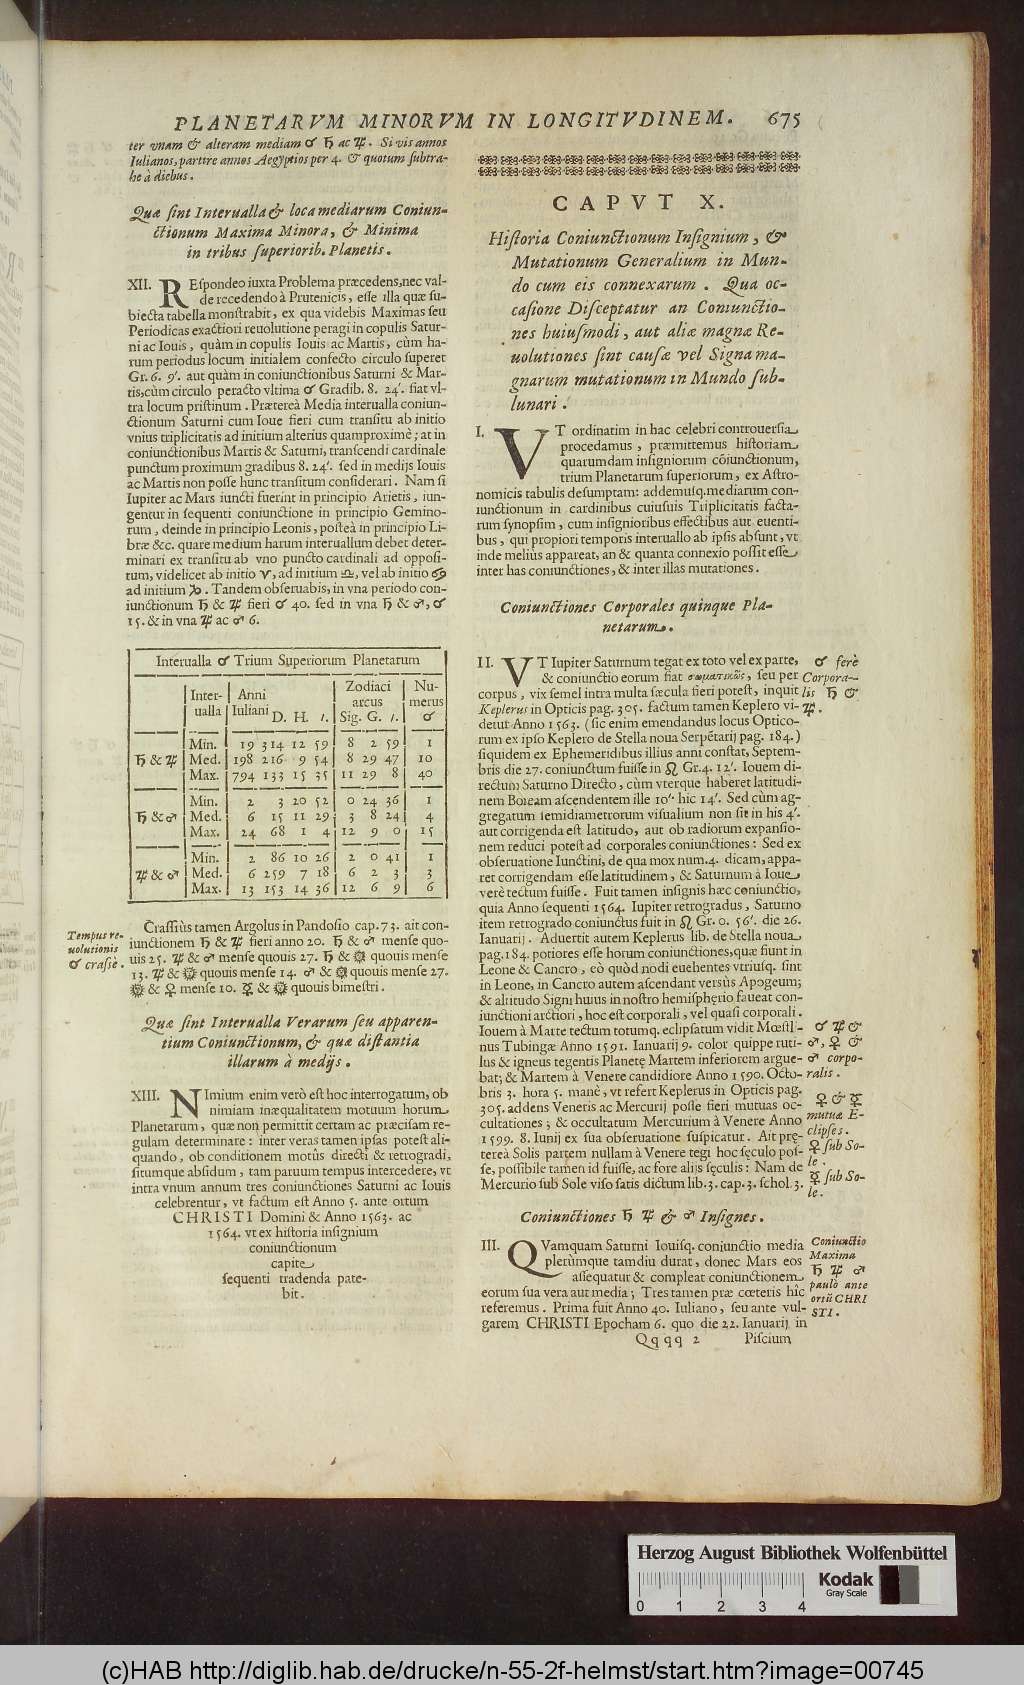 PLANETARVM MINORVM IN LONGITVDINEM. 675
ter vnam & alteram mediam ☌ ♄ ac ♃. Si vis annos
Iulianos, partire annos Aegyptios per 4. & quotum subtra-
he à diebus.
Quæ sint Interualla & loca mediarum Coniun-
ctionum Maxima Minora, & Minima
in tribus superiorib. Planetis.
XII. REspondeo iuxta Problema præcedens, nec val-
de recedendo à Prutenicis, esse illa quæ su-
biecta tabella monstrabit, ex qua videbis Maximas seu
Periodicas exactiori reuolutione peragi in copulis Satur-
ni ac Iouis, quàm in copulis Iouis ac Martis, cùm ha-
rum periodus locum initialem confecto circulo superet
Gr. 6. 9'. aut quàm in coniunctionibus Saturni & Mar-
tis, cùm circulo peracto vltima ☌ Gradib. 8. 24'. fiat vl-
tra locum pristinum. Prætereà Media interualla coniun-
ctionum Saturni cum Ioue fieri cum transitu ab initio
vnius triplicitatis ad initium alterius quamproximè; at in
coniunctionibus Martis & Saturni, transcendi cardinale
punctum proximum gradibus 8. 24'. sed in medijs Iouis
ac Martis non posse hunc transitum considerari. Nam si
Iupiter ac Mars iuncti fuerint in principio Arietis, iun-
gentur in sequenti coniunctione in principio Gemino-
rum, deinde in principio Leonis, posteà in principio Li-
bræ &c. quare medium harum interuallum debet deter-
minari ex transitu ab vno puncto cardinali ad opposi-
tum, videlicet ab initio ♈, ad initium ♎, vel ab initio ♋
ad initium ♑. Tandem obseruabis, in vna periodo con-
iunctionum ♄ & ♃ fieri ☌ 40. sed in vna ♄ & ♂, ☌
15. & in vna ♃ ac ♂ 6.
Interualla ☌ Trium Superiorum Planetarum
Inter-ualla | Anni Iuliani D. H. ı. | Zodiaci arcus Sig. G. ı. | Nu-merus ☌
♄ & ♃ Min. 19 314 12 59 8 2 59 1
Med. 198 216 9 54 8 29 47 10
Max. 794 133 15 35 11 29 8 40
♄ & ♂ Min. 2 3 20 52 0 24 36 1
Med. 6 15 11 29 3 8 24 4
Max. 24 68 1 4 12 9 0 15
♃ & ♂ Min. 2 86 10 26 2 0 41 1
Med. 6 259 7 18 6 2 3 3
Max. 13 153 14 36 12 6 9 6
Tempus re-
uolutionis
☌ crassè.
Crassiùs tamen Argolus in Pandosio cap. 73. ait con-
iunctionem ♄ & ♃ fieri anno 20. ♄ & ♂ mense quo-
uis 25. ♃ & ♂ mense quouis 27. ♄ & ☼ quouis mense
13. ♃ & ☼ quouis mense 14. ♂ & ☼ quouis mense 27.
☼ & ♀ mense 10. ☿ & ☼ quouis bimestri.
Quæ sint Interualla Verarum seu apparen-
tium Coniunctionum, & quæ distantia
illarum à medijs.
XIII. NImium enim verò est hoc interrogatum, ob
nimiam inæqualitatem motuum horum
Planetarum, quæ non permittit certam ac præcisam re-
gulam determinare: inter veras tamen ipsas potest ali-
quando, ob conditionem motûs directi & retrogradi,
situmque absidum, tam paruum tempus intercedere, vt
intra vnum annum tres coniunctiones Saturni ac Iouis
celebrentur, vt factum est Anno 5. ante ortum
CHRISTI Domini & Anno 1563. ac
1564. vt ex historia insignium
coniunctionum
capite
sequenti tradenda pate-
bit.
CAPVT X.
Historia Coniunctionum Insignium, &
Mutationum Generalium in Mun-
do cum eis connexarum. Qua oc-
casione Disceptatur an Coniunctio-
nes huiusmodi, aut aliæ magnæ Re-
uolutiones sint causæ vel Signa ma-
gnarum mutationum in Mundo sub-
lunari.
I. VT ordinatim in hac celebri controuersia
procedamus, præmittemus historiam
quarumdam insigniorum cõiunctionum,
trium Planetarum superiorum, ex Astro-
nomicis tabulis desumptam: addemusq. mediarum con-
iunctionum in cardinibus cuiusuis Triplicitatis facta-
rum synopsim, cum insignioribus effectibus aut euenti-
bus, qui propiori temporis interuallo ab ipsis absunt, vt
inde meliùs appareat, an & quanta connexio possit esse
inter has coniunctiones, & inter illas mutationes.
Coniunctiones Corporales quinque Pla-
netarum.
II. VT Iupiter Saturnum tegat ex toto vel ex parte,
& coniunctio eorum fiat σωματικῶς, seu per
corpus, vix semel intra multa sæcula fieri potest, inquit
Keplerus in Opticis pag. 305. factum tamen Keplero vi-
detur Anno 1563. (sic enim emendandus locus Optico-
rum ex ipso Keplero de Stella noua Serpẽtarij pag. 184.)
siquidem ex Ephemeridibus illius anni constat, Septem-
bris die 27. coniunctum fuisse in ♌ Gr. 4. 12'. Iouem di-
rectum Saturno Directo, cùm vterque haberet latitudi-
nem Boream ascendentem ille 10'. hic 14'. Sed cùm ag-
gregatum semidiametrorum visualium non sit in his 4'.
aut corrigenda est latitudo, aut ob radiorum expansio-
nem reduci potest ad corporales coniunctiones: Sed ex
obseruatione Iunctini, de qua mox num. 4. dicam, appa-
ret corrigendam esse latitudinem, & Saturnum à Ioue
verè tectum fuisse. Fuit tamen insignis hæc coniunctio,
quia Anno sequenti 1564. Iupiter retrogradus, Saturno
item retrogrado coniunctus fuit in ♌ Gr. 0. 56'. die 26.
Ianuarij. Aduertit autem Keplerus lib. de Stella noua
pag. 184. potiores esse horum coniunctiones, quæ fiunt in
Leone & Cancro, eò quòd nodi euehentes vtriusq. sint
in Leone, in Cancro autem ascendant versùs Apogeum;
& altitudo Signi huius in nostro hemisphęrio faueat con-
iunctioni arctiori, hoc est corporali, vel quasi corporali.
Iouem à Marte tectum totumq. eclipsatum vidit Mœstli-
nus Tubingæ Anno 1591. Ianuarij 9. color quippe ruti-
lus & igneus tegentis Planetę Martem inferiorem argue-
bat; & Martem à Venere candidiore Anno 1590. Octo-
bris 3. hora 5. manè, vt refert Keplerus in Opticis pag.
305. addens Veneris ac Mercurij posse fieri mutuas oc-
cultationes; & occultatum Mercurium à Venere Anno
1599. 8. Iunij ex sua obseruatione suspicatur. Ait prę-
tereà Solis partem nullam à Venere tegi hoc sęculo pos-
se, possibile tamen id fuisse, ac fore alijs sęculis: Nam de
Mercurio sub Sole viso satis dictum lib. 3. cap. 3. schol. 3.
☌ ferè
Corpora-
lis ♄ &
♃.
☌ ♃ &
♂, ♀ &
♂ corpo-
ralis.
♀ & ☿
mutuæ E-
clipses.
♀ sub So-
le.
☿ sub So-
le.
Coniunctiones ♄ ♃ & ♂ Insignes.
III. QVamquam Saturni Iouisq. coniunctio media
plerùmque tamdiu durat, donec Mars eos
assequatur & compleat coniunctionem
eorum sua vera aut media; Tres tamen præ cœteris hîc
referemus. Prima fuit Anno 40. Iuliano, seu ante vul-
garem CHRISTI Epocham 6. quo die 22. Ianuarij in
Coniunctio
Maxima
♄ ♃ ♂
paulò ante
ortũ CHRI
STI.
Qqqq 2 Piscium
Herzog August Bibliothek Wolfenbüttel
Kodak
Gray Scale
0 1 2 3 4
(c)HAB http://diglib.hab.de/drucke/n-55-2f-helmst/start.htm?image=00745